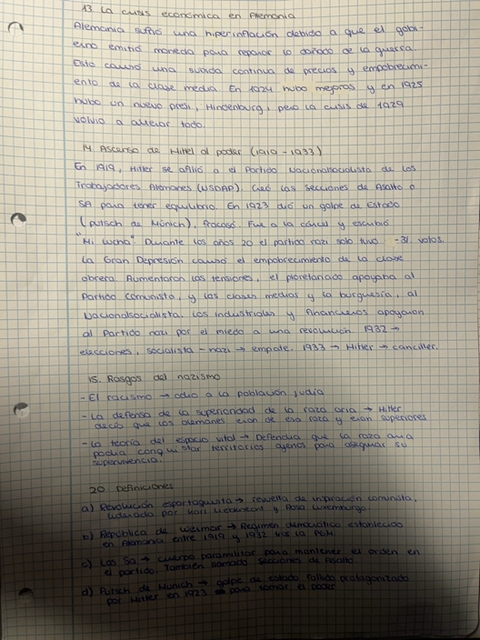 13. La crisis económica en Alemania
Alemania sufrió una hiperinflación debido a que el gobi-
erno emitió moneda para reparar lo dañado de la guerra.
Esto causó una subida continua de precios y empobrecimi-
ento de la clase media. En 1924 hubo mejoras y en 1925
hubo un nuevo presi, Hindenburg, pero la crisis de 1929
volvió a alterar todo.
14. Ascenso de Hitler al poder (1919-1933)
En 1919, Hitler se afilió a el Partido Nacionalsocialista de los
Trabajadores Alemanes (NSDAP). Creó las Secciones de Asalto o
SA para tener equilibrio. En 1923 dió un golpe de Estado
(putsch de Múnich), fracasó. Fue a la cárcel y escribió
"Mi lucha". Durante los años 20 el partido nazi solo tuvo -3% votos.
La Gran Depresión causó el empobrecimiento de la clase
obrera. Aumentaron las tensiones, el proletariado apoyaba al
Partido Comunista, y las clases medias y la burguesía, al
Nacionalsocialista. Los industriales y financieros apoyaron
al Partido nazi por el miedo a una revolución. 1932 →
elecciones, socialista - nazi → empate. 1933 → Hitler → canciller.
15. Rasgos del nazismo
- El racismo → odio a la población judía
- La defensa de la superioridad de la raza aria → Hitler
decía que los alemanes eran de esa raza y eran superiores
- La teoría del espacio vital → Defendía que la raza aria
podía conquistar territorios ajenos para asegurar su
supervivencia.
20. Definiciones
a) Revolución espartaquista → revuelta de inspiración comunista,
liderada por Karl Liebknecht y Rosa Luxemburgo.
b) República de Weimar → Régimen democrático establecido
en Alemania entre 1919 y 1932 tras la PGM.
c) Las SA → cuerpo paramilitar para mantener el orden en
el partido. También llamado Secciones de Asalto.
d) Putsch de Munich → golpe de estado fallido protagonizado
por Hitler en 1923 para tomar el poder